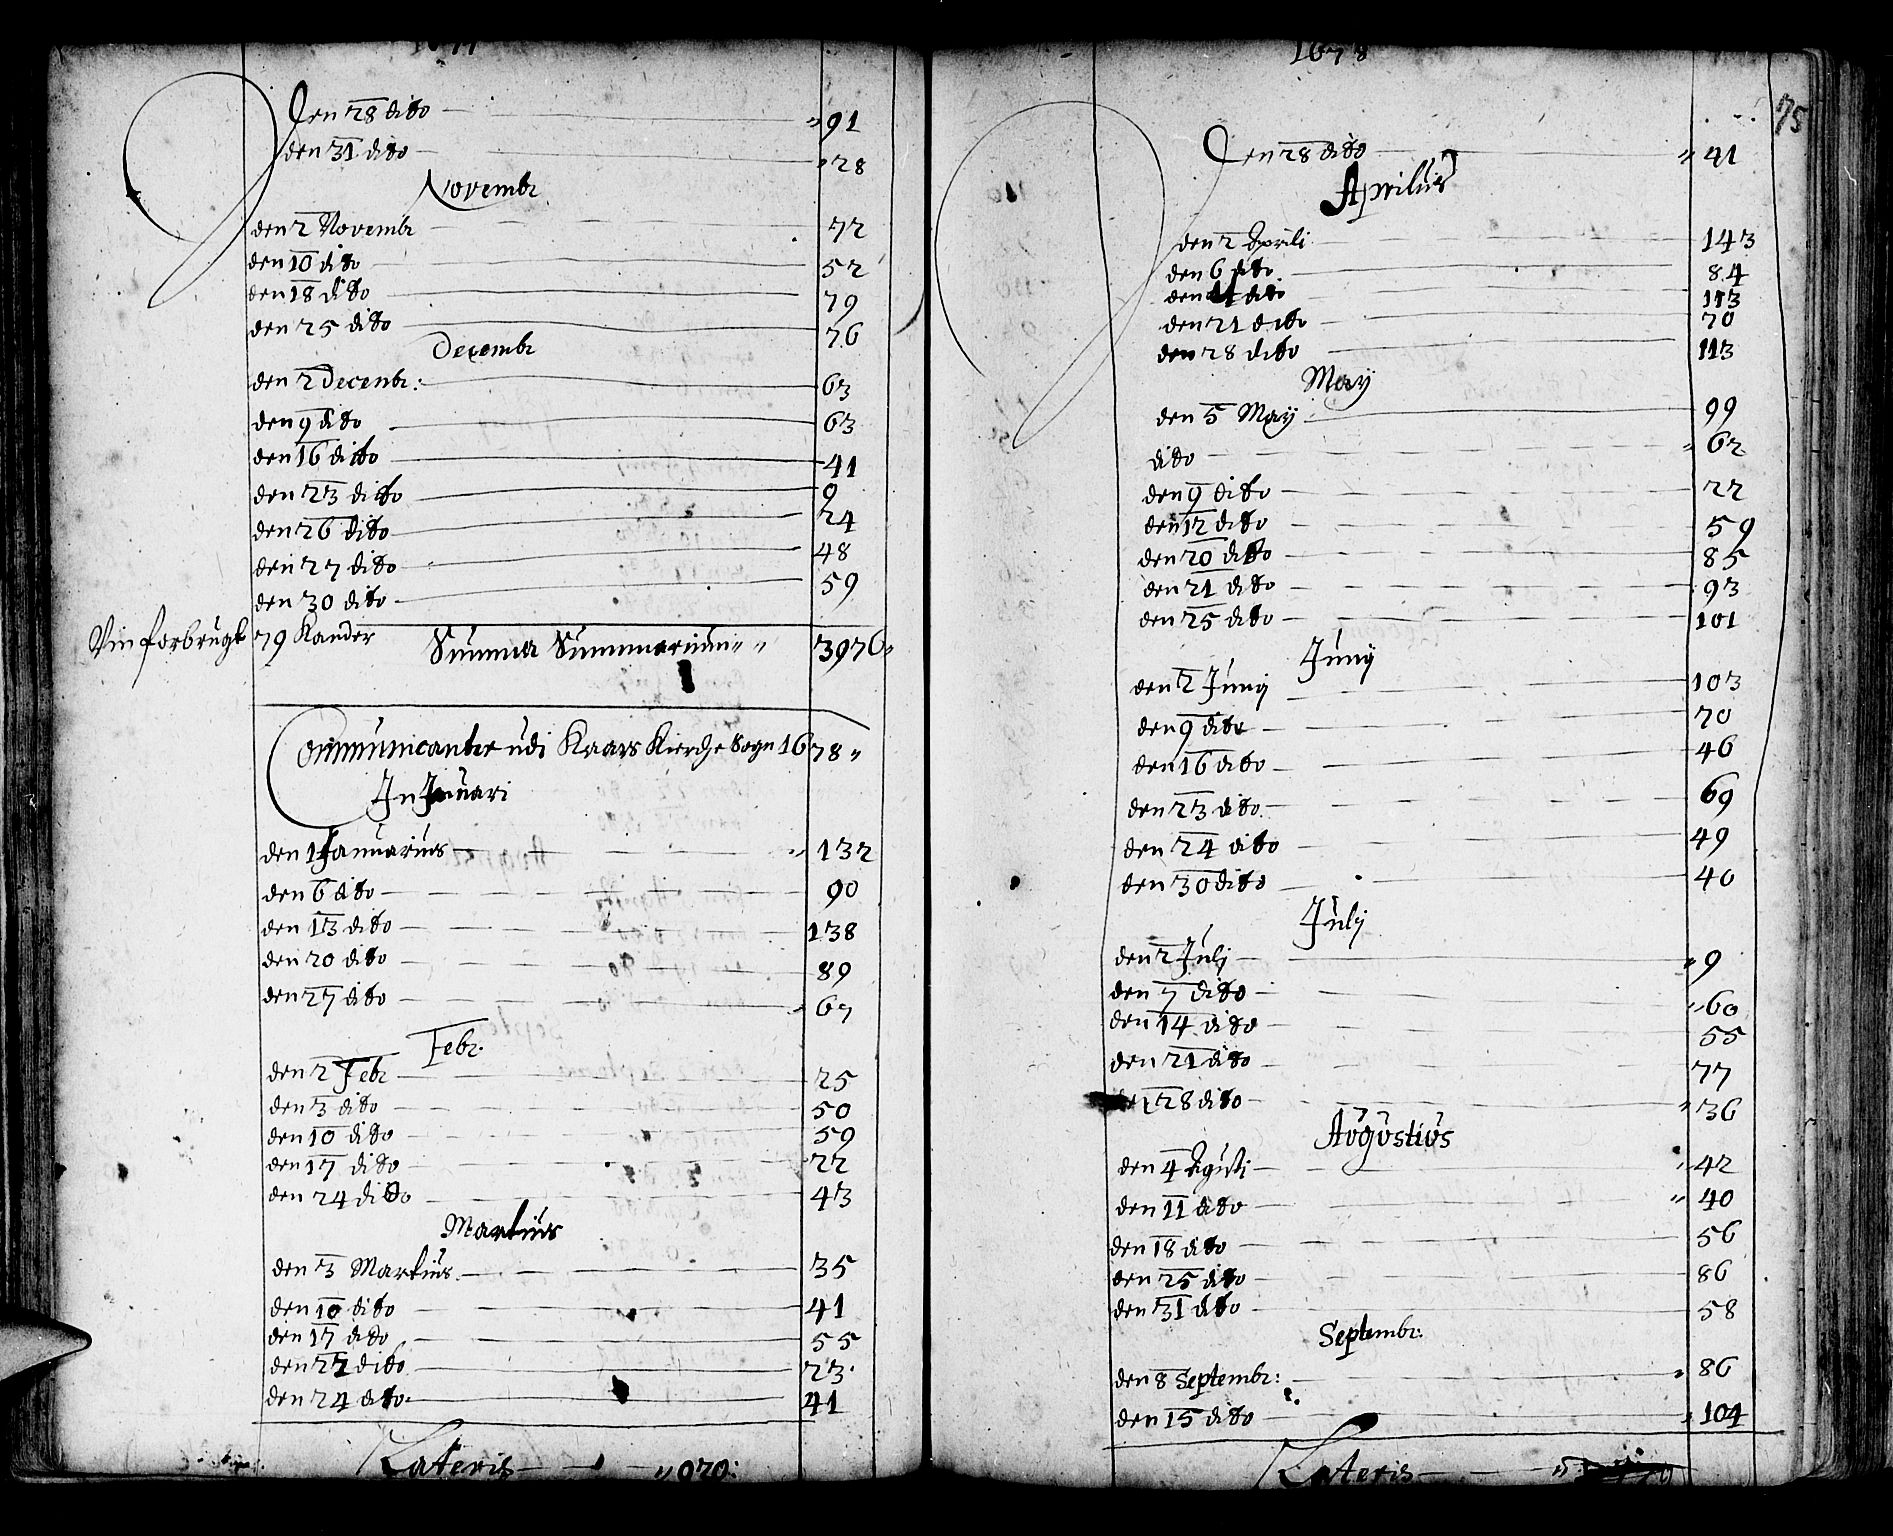 1677
den 28 dito 91
den 31 dito 28
Novembr
den 2 Novembr 72
den 10 dito 52
den 18 dito 79
den 25 dito 76
Decembr
den 2 Decenbr: 63
den 9 dito 63
den 16 dito 41
den 23 dito 9
den 26 dito 24
den 27 dito 48
den 30 dito 59
Vin forbrugt 79 Kander Summa Summarium 3976
Communicanter udi Kaars Kierche Sogn 1678
In Januari
den 1 Januarius 132
den 6 dito 90
den 13 dito 138
den 20 dito 89
den 27 dito 67
Febr.
den 2 Febr 25
den 3 dito 50
den 10 dito 59
den 17 dito 22
den 24 dito 43
Martius
den 3 Martius 35
den 10 dito 41
den 17 dito 55
den 22 dito 23
den 24 dito 41
Lateris 970:
1678
75
den 28 dito 41
Aprilius
den 2 Aprili 143
den 6 dito 84
den 14 dito 113
den 21 dito 70
den 28 dito 113
May
den 5 May 99
dito 62
den 9 dito 22
den 12 dito 59
den 20 dito 85
den 21 dito 93
den 25 dito 101
Junij
den 2 Junij 103
den 9 dito 70
den 16 dito 46
den 23 dito 69
den 24 dito 49
den 30 dito 40
Julij
den 2 Julij 9
den 7 dito 60
den 14 dito 55
den 21 dito 77
den 28 dito 36
Augustius
den 4 Agusti 42
den 11 dito 40
den 18 dito 56
den 25 dito 86
den 31 dito 58
Septembr.
den 8 Septembr: 86
den 15 dito 104
Lateris